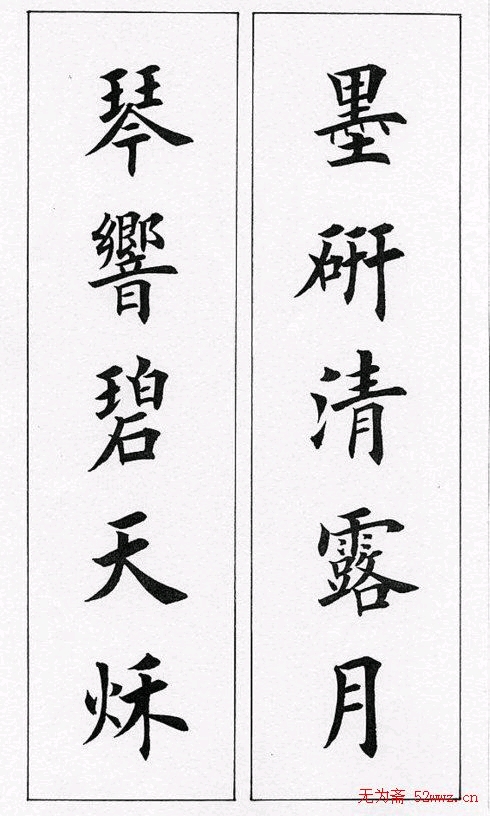 墨硏清露月
琴響碧天秌
无为斋 52wwz.cn